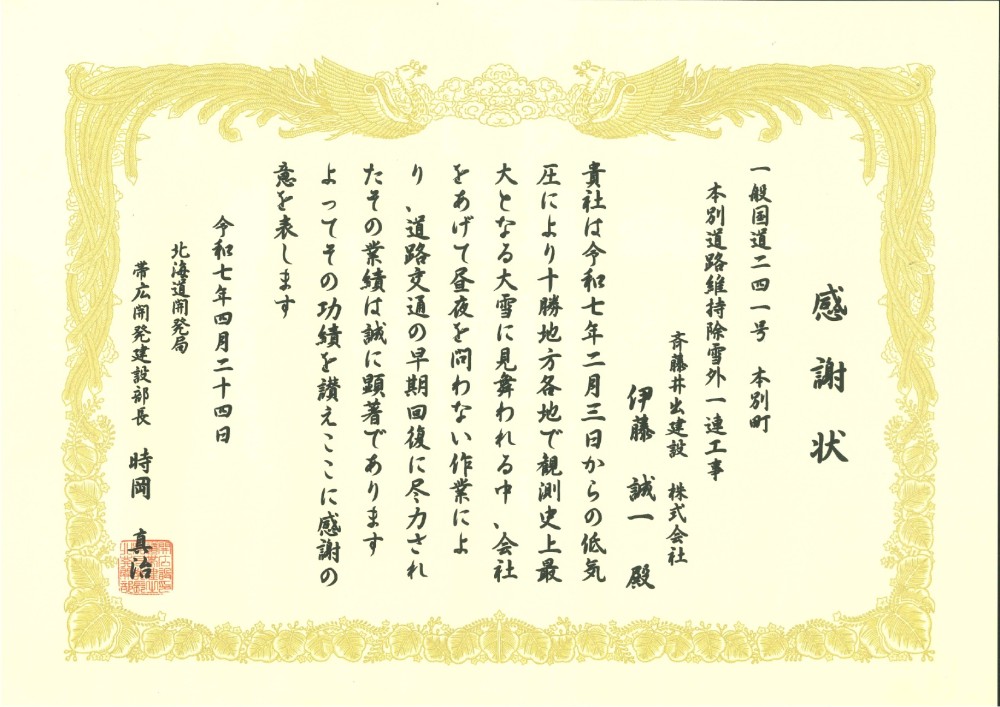 感謝状
一般国道二四一号　本別町
本別道路維持除雪外一連工事
斉藤井出建設　株式会社
伊藤　誠一　殿
貴社は令和七年二月三日からの低気
圧により十勝地方各地で観測史上最
大となる大雪に見舞われる中、会社
をあげて昼夜を問わない作業によ
り、道路交通の早期回復に尽力され
たその業績は誠に顕著であります
よってその功績を讃えここに感謝の
意を表します
令和七年四月二十四日
北海道開発局
帯広開発建設部長　時岡　真治